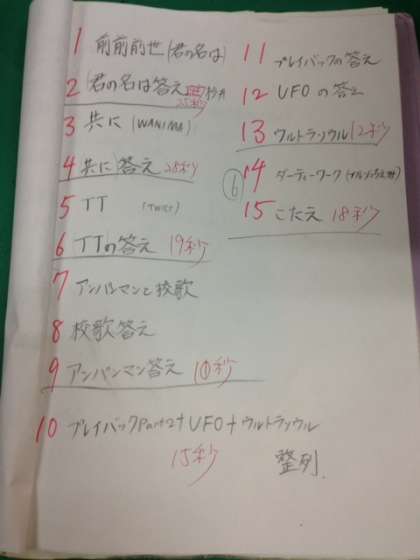 1 前前前世(君の名は)
2 (君の名は答え 25秒
3 共に (WANIMA)
4 共に 答え 25秒
5 TT (TWICE)
6 TTの答え 19秒
7 アンパンマンと校歌
8 校歌答え
9 アンパンマン答え 10秒
10 プレイバックPart2+UFO+ウルトラソウル
15秒
整列
11 プレイバックの答え
12 UFOの答え
13 ウルトラソウル12秒
6
14 ダーティーワーク
15 こたえ 18秒